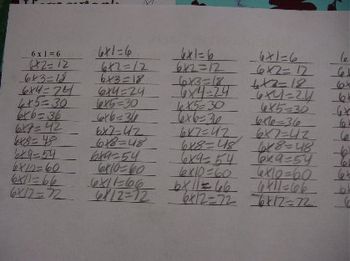 6x1=6
6x2=12
6x3=18
6x4=24
6x5=30
6x6=36
6x7=42
6x8=48
6x9=54
6x10=60
6x11=66
6x12=72
6x1=6
6x2=12
6x3=18
6x4=24
6x5=30
6x6=36
6x7=42
6x8=48
6x9=54
6x10=60
6x11=66
6x12=72
6x1=6
6x2=12
6x3=18
6x4=24
6x5=30
6x6=36
6x7=42
6x8=48
6x9=54
6x10=60
6x11=66
6x12=72
6x1=6
6x2=12
6x3=18
6x4=24
6x5=30
6x6=36
6x7=42
6x8=48
6x9=54
6x10=60
6x11=66
6x12=72